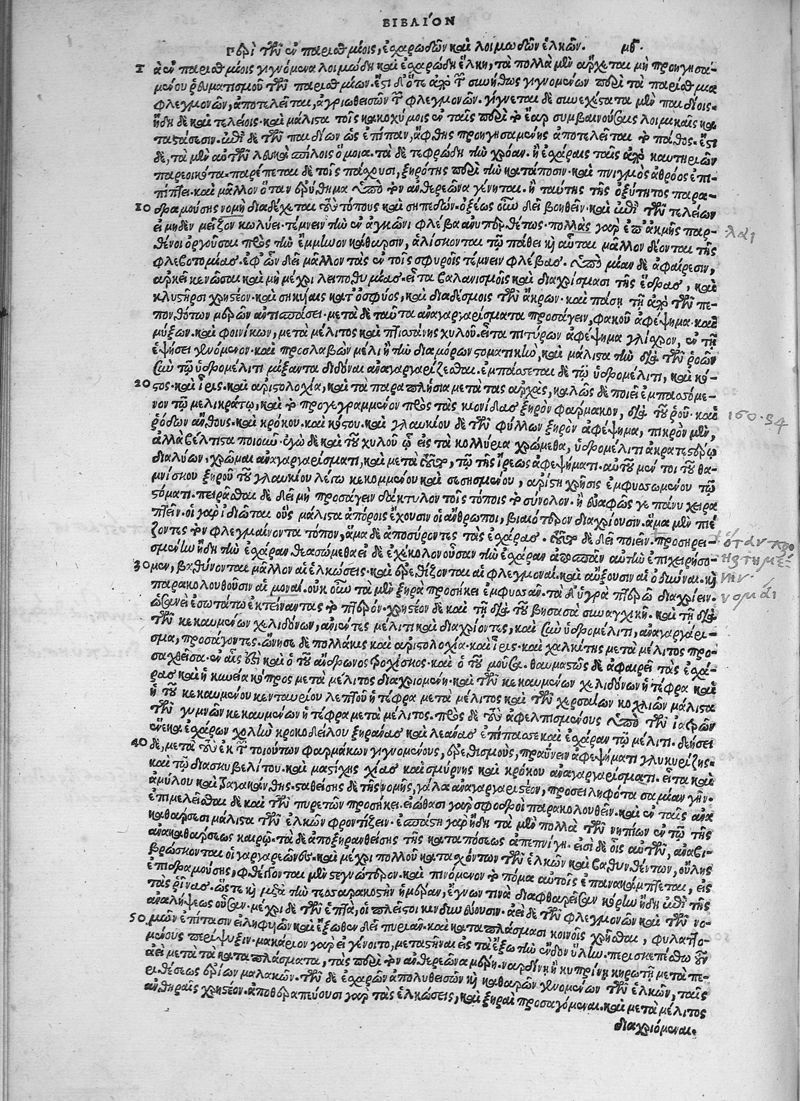 ΒΙΒΛΙΟΝ
Περὶ τῶν ἐν παρισθμίοις, ἐσχαρωδῶν καὶ λοιμωδῶν ἑλκῶν. μϛ.
Τὰ ἐν παρισθμίοις γιγνόμενα λοιμώδη καὶ ἐσχαρώδη ἕλκη, τὰ πολλὰ μὲν ἄρχεται μὴ προηγησα-
μένου ῥευματισμοῦ τῶν παρισθμίων. ἔστι δ' ὅτε ἀπὸ τῶν συνήθως γιγνομένων περὶ τὰ παρίσθμια
φλεγμονῶν, ἀποτελεῖται, ἀγριωθεισῶν τῶν φλεγμονῶν. γίνεται δὲ συνεχέστατα μὲν παιδίοις.
ἤδη δὲ καὶ τελείοις. καὶ μάλιστα τοῖς κακοχύμοις ἐν ταῖς περὶ τὸ ἔαρ συμβαινούσαις λοιμικαῖς κα-
ταστάσεσιν. ἐπὶ δὲ τῶν παιδίων ὡς ἐπίπαν, ἄφθης προηγησαμένης ἀποτελεῖται τὸ πάθος. ἔστι
δὲ, τὰ μὲν αὐτῶν λευκὰ σπίλοις ὅμοια. τὰ δὲ τεφρώδη τὴν χρόαν. ἢ ἐσχάραις ταῖς ἀπὸ καυτηρίων
παρεοικότα. παρέπεται δὲ τοῖς πάσχουσι, ξηρότης περὶ τὴν κατάποσιν. καὶ πνιγμὸς ἀθρόος ἐπι-
πίπτει. καὶ μᾶλλον ὅταν ἐρύθημα ὑπὸ τὸν ἀνθερεῶνα γένηται. ἢ ταύτης τῆς ὀξύτητος παρα-
10 δραμούσης νομὴ διαδέχεται τοὺς τόπους καὶ σηπεδών. ὀξέως οὖν δεῖ βοηθεῖν. καὶ ἐπὶ τῶν τελείων
εἰ μηδὲν μεῖζον κωλύει. τέμνειν τὴν ἐν ἀγκῶνι φλέβα ἀνυπερθέτως. πολλὰς γὰρ ἐπ' ἀκμῆς παρ-
θένοι ὀργοῦσαι πρὸς τὴν ἔμμηνον κάθαρσιν, ἁλίσκονται τῷ πάθει καὶ αὗται μᾶλλον δέονται τῆς
φλεβοτομίας. ἐφ' ὧν δεῖ μᾶλλον τὰς ἐν τοῖς σφυροῖς τέμνειν φλέβας. ὑπὸ μίαν δὲ ἀφαίρεσιν,
ἀρκεῖ κενῶσαι καὶ μὴ μέχρι λειποθυμίας. εἶτα βαλανισμοῖς καὶ διαχρίσμασι τῆς ἕδρας, καὶ
κλυστῆρσι χρηστέον. καὶ σικύαις κατ' ὀσφύος, καὶ διαδέσμοις τῶν ἄκρων. καὶ πάσῃ τῇ ἀπὸ τῶν πε-
πονθότων μερῶν ἀντισπάσει. μετὰ δὲ ταῦτα ἀναγαργαρίσματα προσάγειν, φακοῦ ἀφέψημα καὶ
μύξων. καὶ φοινίκων, μετὰ μέλιτος καὶ πτισάνης χυλοῦ. εἶτα πιτύρων ἀφέψημα γλίσχρον, ἐν τῇ
ἑψήσει γινόμενον. καὶ προσλαβὼν μέλι ἢ τὴν διαμόρων στοματικὴν, καὶ μάλιστα τὴν διὰ τῶν ῥοῶν
σὺν τῷ ὑδρομέλιτι μίξαντα διδόναι ἀναγαργαρίζεσθαι. ἐμπαίσεται δὲ τῷ ὑδρομέλιτι, καὶ κό-
20 στος. καὶ ἶρις. καὶ ἀριστολοχία, καὶ τὰ παραπλήσια μετὰ τὰς ἀρχὰς, καλῶς δὲ ποιεῖ ἐμπασσόμε-
νον τῷ μελικράτῳ, καὶ τὸ προγεγραμμένον πρὸς τὰς κιονίδας ξηρὸν φάρμακον, διὰ τοῦ ῥοῦ. καὶ
ῥόδων ἄνθους. καὶ κρόκου. καὶ κόστου. καὶ γλαυκίου δὲ τῶν φύλλων ξηρὸν ἀφέψημα, πικρὸν μὲν,
ἀλλὰ βέλτιστα ποιοῦν. ἐγὼ δὲ καὶ τοῦ χυλοῦ ᾧ εἰς τὰ κολλύρια χρώμεθα, ὑδρομέλιτι ἀκρατεστέρῳ
διαλύων. χρῶμαι ἀναγαργαρίσματι, καὶ μετὰ τοῦτο, τῷ τῆς ἴρεως ἀφεψήματι. αὐτοῦ μέν τοι τοῦ θα-
μνίσκου ξηροῦ τοῦ γλαυκίου λέγω κεκομμένου καὶ σεσησμένου, ἀρίστη χρῆσις ἐμφυσωμένου τῷ
στόματι. πειρᾶσθαι δὲ δεῖ μὴ προσάγειν δάκτυλον τοῖς τόποις τὸ σύνολον. ἢ εὐαφῶς γε πάνυ χεῖρα
πλεῖν. οἱ γὰρ ἰδιῶται οὓς μάλιστα ἀπόροις ἔχουσιν οἱ ἄνθρωποι, βιαιότερον διαχρίουσιν. ἅμα μὲν πιέ-
ζοντες τὸν φλεγμαίνοντα τόπον, ἅμα δὲ ἀποσύροντες τὰς ἐσχάρας. τοῦτο δὲ δεῖ ποιεῖν. προσηρει-
σμένην ἤδη τὴν ἐσχάραν θεασόμεθα εἰ δὲ εὐχκολονοῦσαν τὴν ἐσχάραν ἀποσπᾶν αὐτὴν ἐπιχειρήσο-
30 μεν, βαθύνονται μᾶλλον αἱ ἑλκώσεις. καὶ ἐρεθίζονται αἱ φλεγμοναὶ. καὶ αὔξουσιν αἱ ὀδύναι. καὶ
παρακολουθοῦσιν αἱ νομαί. οὐκ οὖν τὰ μὲν ξηρὰ προσήκει ἐμφυσᾶν. τὰ δ' ὑγρὰ πτερῷ διαχρίειν.
ὥστε ἐσωτάτω ἐκτείναντας τὸ πτερόν. χρηστέον δὲ καὶ τῇ διὰ τοῦ βησασᾶ συναγχικῇ. καὶ τῇ διὰ
τῶν κεκαυμένων χελιδόνων, ἀνιέντες μέλιτι καὶ διαχρίοντες, καὶ σὺν ὑδρομέλιτι, ἀναγαργάρι-
σμα, προσάγοντες. ὤνησε δὲ πολλάκις καὶ ἀριστολοχία. καὶ ἶρις. καὶ χαλκῖτις μετὰ μέλιτος προ-
σαχθεῖσα. ἐν αἷς ἐστὶ καὶ ὁ τοῦ ἄνδρωνος τροχίσκος. καὶ ὁ τοῦ μούσα. θαυμαστῶς δὲ ἀφαιρεῖ τὰς ἐσχά-
ρας καὶ ἡ κωεία κόπρος μετὰ μέλιτος διαχριομένη. καὶ τῶν κεκαυμένων χελιδόνων ἡ τέφρα καὶ
ἡ τοῦ κεκαυμένου κενταυρίου λεπτοῦ ἡ τέφρα μετὰ μέλιτος. καὶ τῶν χερσαίων κοχλιῶν μάλιστα
τῶν γυμνῶν κεκαυμένων ἡ τέφρα μετὰ μέλιτος. πρὸς δὲ τοὺς ἀφελπισμένους ὑπὸ τῶν ἰατρῶν
ἕνεκα ἐσχάρων χολὴν κροκοδείλου ξηράνας καὶ λεάνας ἐπίπασσε καὶ ἐσχάραν τῷ μέλιτι. δεήσει
40 δὲ, μετὰ τοὺς ἐκ τῶν τοιούτων φαρμάκων γιγνομένους, ἐρεθισμοὺς, πραΰνειν ἀφεψήματι γλυκυρίζης.
καὶ τῷ διασκυβελίτου. καὶ μαστίχης χίας καὶ σμύρνης καὶ κρόκου ἀναγαργαρίσματι. εἶτα καὶ
ἀμύλου καὶ τραγακάνθης. σταθείσης δὲ τῆς νομῆς, γάλα ἀναγαργαριστέον, προσειληφότα σαμίαν γῆν.
ἐπιμελεῖσθαι δὲ καὶ τῶν πυρετῶν προσήκει. εἰώθασι γὰρ σφοδροὶ παρακολουθεῖν. καὶ ἐν ταῖς ἀνα
καθάρσεσι μάλιστα τῶν ἑλκῶν φροντίζειν. ἐπάσῃ γὰρ ἤδη τὰ μὲν πολλὰ τῶν νηπίων ἐν τῷ τῆς
ἀνακαθάρσεως καιρῷ. τὰ δὲ ἀποξηρανθείσης τῆς καταπόσεως ἀπεπνίγη. εἰσὶ δὲ οἷς αὐτῶν, ἀναβι-
βρώσκονται οἱ γαργαρεῶνες. καὶ μέχρι πολλοῦ κατασχόντων τῶν ἑλκῶν καὶ βαθυνθέντων, οὐλῆς
ἐπιδραμούσης, φθέγγονται μὲν στεγνότερον. καὶ πινόμενον τὸ πόμα αὐτοῖς ἐπανακάμπτεται, εἰς
τὰς ῥῖνας. ὥστε καὶ μετὰ τὴν τεσσαρακοστὴν ἡμέραν, ἔγνων τινὰ διαφθαρεῖσαν κόρην ἤδη ἐπὶ τῆς
ἀναλήψεως οὖσαν. μέχρι δὲ τῶν ἑπτὰ, οἱ πλεῖστοι κινδυνεύουσιν. ἀεὶ δὲ τῶν φλεγμονῶν καὶ τῶν νο-
50 μῶν ἐπίτασιν εἰληφυιῶν καὶ ἔξωθεν δεῖ πυριᾶν. καὶ καταπλάσμασι κοινοῖς χρῆσθαι, φυλαττο-
μένους περίψυξιν. μακάριον γὰρ εἰ γένοιτο, μεταστῆναι εἰς τὰ ἔξω τὴν ἔνδον ὕλην. περισκεπέσθω δὲ
ἀεὶ μετὰ τὰ καταπλάσματα, τὰς περὶ τὸν ἀνθερεῶνα μέρη. ναρδίνῃ ἢ κυπρίνῃ κηρωτῇ μετὰ πε-
ριθέσεως ἐρίων μαλακῶν. τῶν δὲ ἐσχαρῶν ἀπολυθεισῶν καὶ καθαρῶν γινομένων τῶν ἑλκῶν, ταῖς
ἀνθηραῖς χρηστέον. ἀποθεραπεύουσι γὰρ τὰς ἑλκώσεις, καὶ ξηραὶ προσαγόμεναι. καὶ μετὰ μέλιτος
διαχριόμεναι.
λάι
160.34
ὅταν προ
νομάι